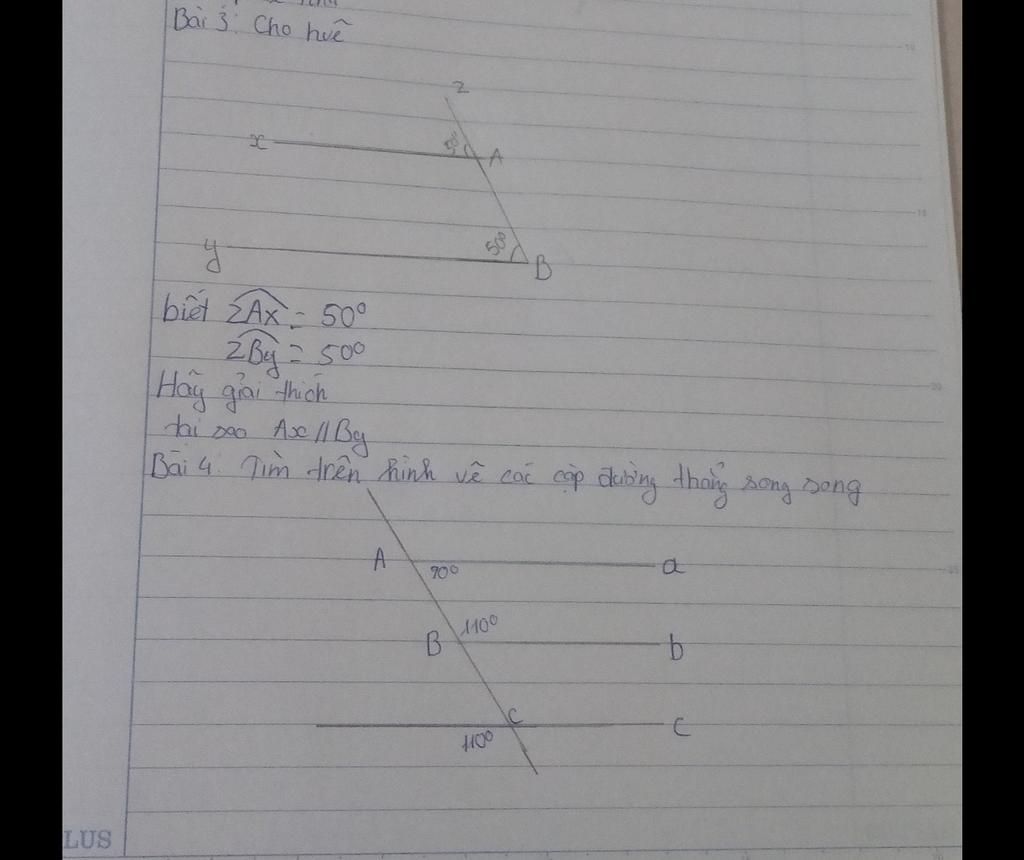 Bài 3: Cho huẽ
z
x
50°
A
50°
y
B
biết zAx = 50°
zBy = 50°
Hãy giải thích
tại sao Ax // By
Bài 4: Tìm trên hình vẽ các cặp đường thẳng song song
A
70°
a
110°
B
b
C
c
110°
LUS